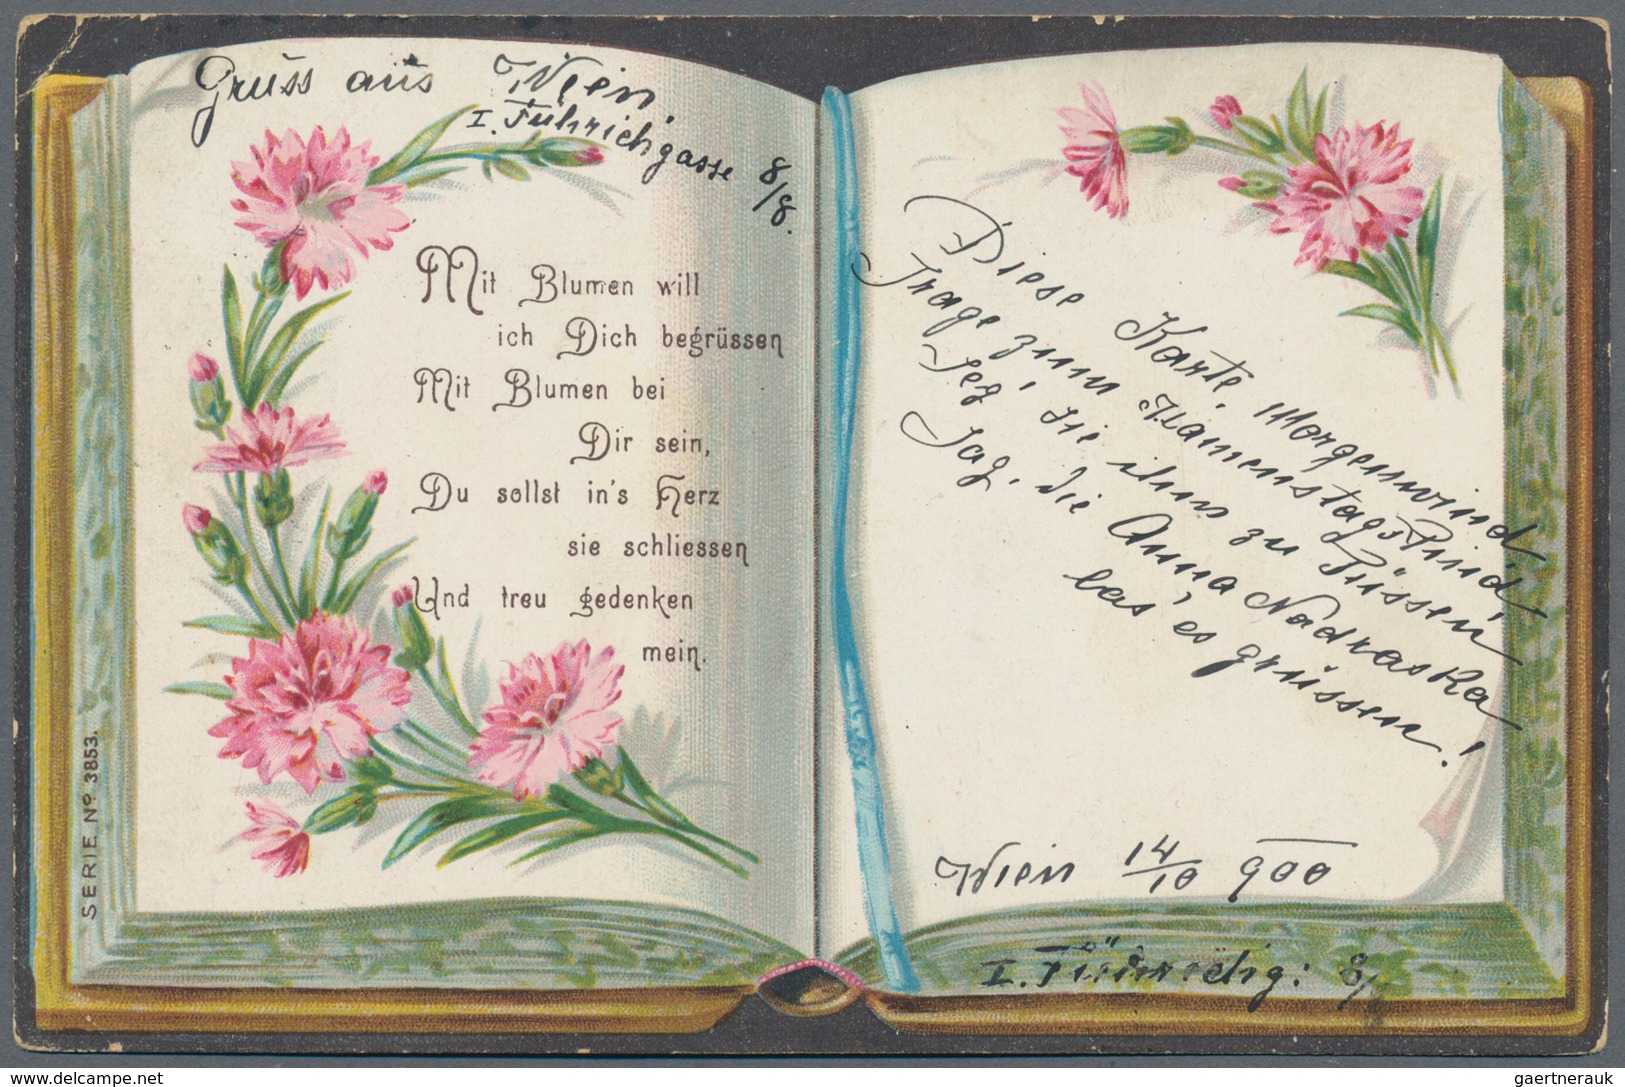 Gruss aus Wien
I. Führichgasse 8/8.
Mit Blumen will
ich Dich begrüssen
Mit Blumen bei
Dir sein,
Du sollst in's Herz
sie schliessen
Und treu gedenken
mein.
SERIE Nº 3853.
Diese Karte, Morgenwind
Trage zum Namenstags
Leg' sie ihm zu Füssen
Sag, die Anna Nadraska
las' es grüssen!
Wien 14/10 900
I. 8/
© www.delcampe.net
gaertnerauk